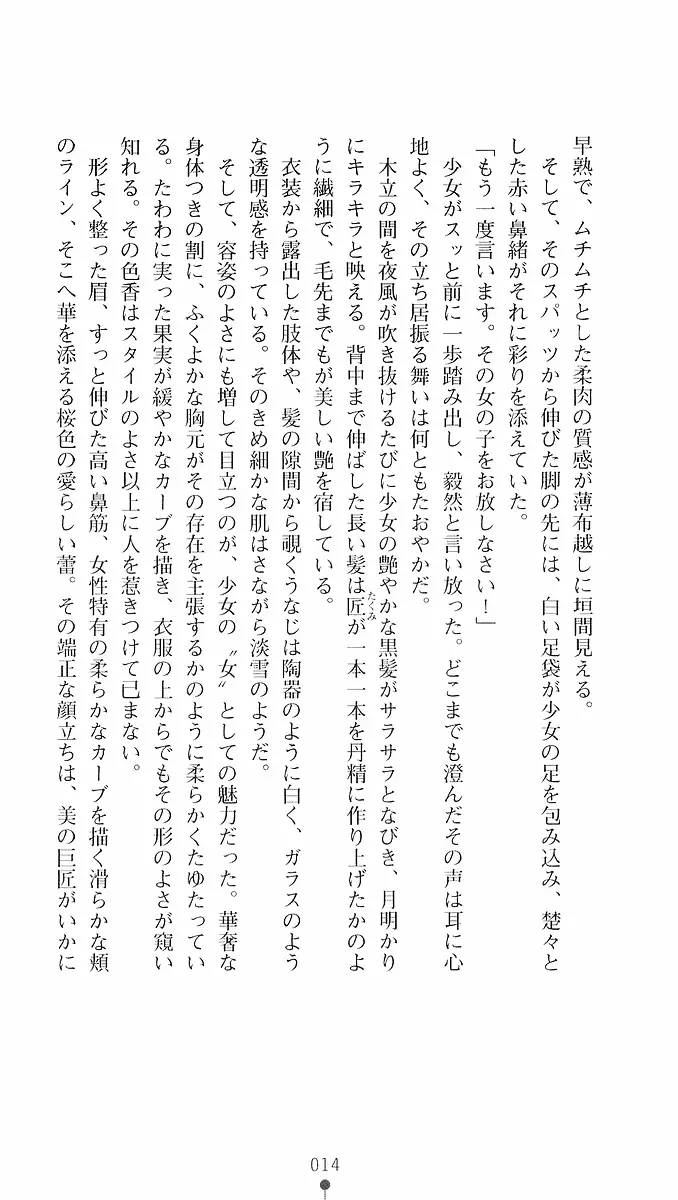 早熟で、ムチムチとした柔肉の質感が薄布越しに垣間見える。
そして、そのスパッツから伸びた脚の先には、白い足袋が少女の足を包み込み、楚々と
した赤い鼻緒がそれに彩りを添えていた。
「もう一度言います。その女の子をお放しなさい！」
少女がスッと前に一歩踏み出し、毅然と言い放った。どこまでも澄んだその声は耳に心
地よく、その立ち居振る舞いは何ともたおやかだ。
木立の間を夜風が吹き抜けるたびに少女の艶やかな黒髪がサラサラとなびき、月明かり
にキラキラと映える。背中まで伸ばした長い髪は匠たくみが一本一本を丹精に作り上げたかのよ
うに繊細で、毛先までもが美しい艶を宿している。
衣装から露出した肢体や、髪の隙間から覗くうなじは陶器のように白く、ガラスのよう
な透明感を持っている。そのきめ細かな肌はさながら淡雪のようだ。
そして、容姿のよさにも増して目立つのが、少女の〝女〟としての魅力だった。華奢な
身体つきの割に、ふくよかな胸元がその存在を主張するかのように柔らかくたゆたってい
る。たわわに実った果実が緩やかなカーブを描き、衣服の上からでもその形のよさが窺い
知れる。その色香はスタイルのよさ以上に人を惹きつけて已まない。
形よく整った眉、すっと伸びた高い鼻筋、女性特有の柔らかなカーブを描く滑らかな頬
のライン、そこへ華を添える桜色の愛らしい蕾。その端正な顔立ちは、美の巨匠がいかに
014